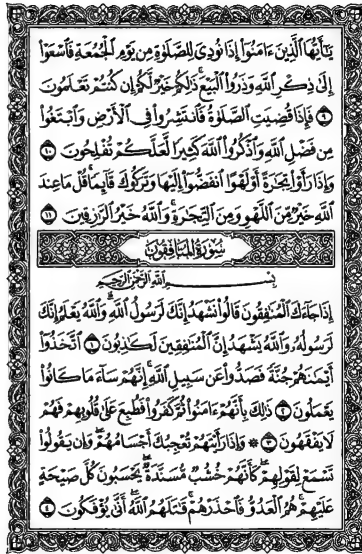 يَٰٓأَيُّهَا ٱلَّذِينَ ءَامَنُوٓا۟ إِذَا نُودِىَ لِلصَّلَوٰةِ مِن يَوْمِ ٱلْجُمُعَةِ فَٱسْعَوْا۟
إِلَىٰ ذِكْرِ ٱللَّهِ وَذَرُوا۟ ٱلْبَيْعَ ۚ ذَٰلِكُمْ خَيْرٌ لَّكُمْ إِن كُنتُمْ تَعْلَمُونَ
٩ فَإِذَا قُضِيَتِ ٱلصَّلَوٰةُ فَٱنتَشِرُوا۟ فِى ٱلْأَرْضِ وَٱبْتَغُوا۟
مِن فَضْلِ ٱللَّهِ وَٱذْكُرُوا۟ ٱللَّهَ كَثِيرًا لَّعَلَّكُمْ تُفْلِحُونَ ١٠
وَإِذَا رَأَوْا۟ تِجَٰرَةً أَوْ لَهْوًا ٱنفَضُّوٓا۟ إِلَيْهَا وَتَرَكُوكَ قَآئِمًا ۚ قُلْ مَا عِندَ
ٱللَّهِ خَيْرٌ مِّنَ ٱللَّهْوِ وَمِنَ ٱلتِّجَٰرَةِ ۚ وَٱللَّهُ خَيْرُ ٱلرَّٰزِقِينَ ١١
سُورَةُ المنَافِقُون
بِسْمِ ٱللَّهِ ٱلرَّحْمَٰنِ ٱلرَّحِيمِ
إِذَا جَآءَكَ ٱلْمُنَٰفِقُونَ قَالُوا۟ نَشْهَدُ إِنَّكَ لَرَسُولُ ٱللَّهِ ۗ وَٱللَّهُ يَعْلَمُ إِنَّكَ
لَرَسُولُهُۥ وَٱللَّهُ يَشْهَدُ إِنَّ ٱلْمُنَٰفِقِينَ لَكَٰذِبُونَ ١ ٱتَّخَذُوٓا۟
أَيْمَٰنَهُمْ جُنَّةً فَصَدُّوا۟ عَن سَبِيلِ ٱللَّهِ ۚ إِنَّهُمْ سَآءَ مَا كَانُوا۟
يَعْمَلُونَ ٢ ذَٰلِكَ بِأَنَّهُمْ ءَامَنُوا۟ ثُمَّ كَفَرُوا۟ فَطُبِعَ عَلَىٰ قُلُوبِهِمْ فَهُمْ
لَا يَفْقَهُونَ ٣ ۞ وَإِذَا رَأَيْتَهُمْ تُعْجِبُكَ أَجْسَامُهُمْ ۖ وَإِن يَقُولُوا۟
تَسْمَعْ لِقَوْلِهِمْ ۖ كَأَنَّهُمْ خُشُبٌ مُّسَنَّدَةٌ ۖ يَحْسَبُونَ كُلَّ صَيْحَةٍ
عَلَيْهِمْ ۚ هُمُ ٱلْعَدُوُّ فَٱحْذَرْهُمْ ۚ قَٰتَلَهُمُ ٱللَّهُ ۖ أَنَّىٰ يُؤْفَكُونَ ٤